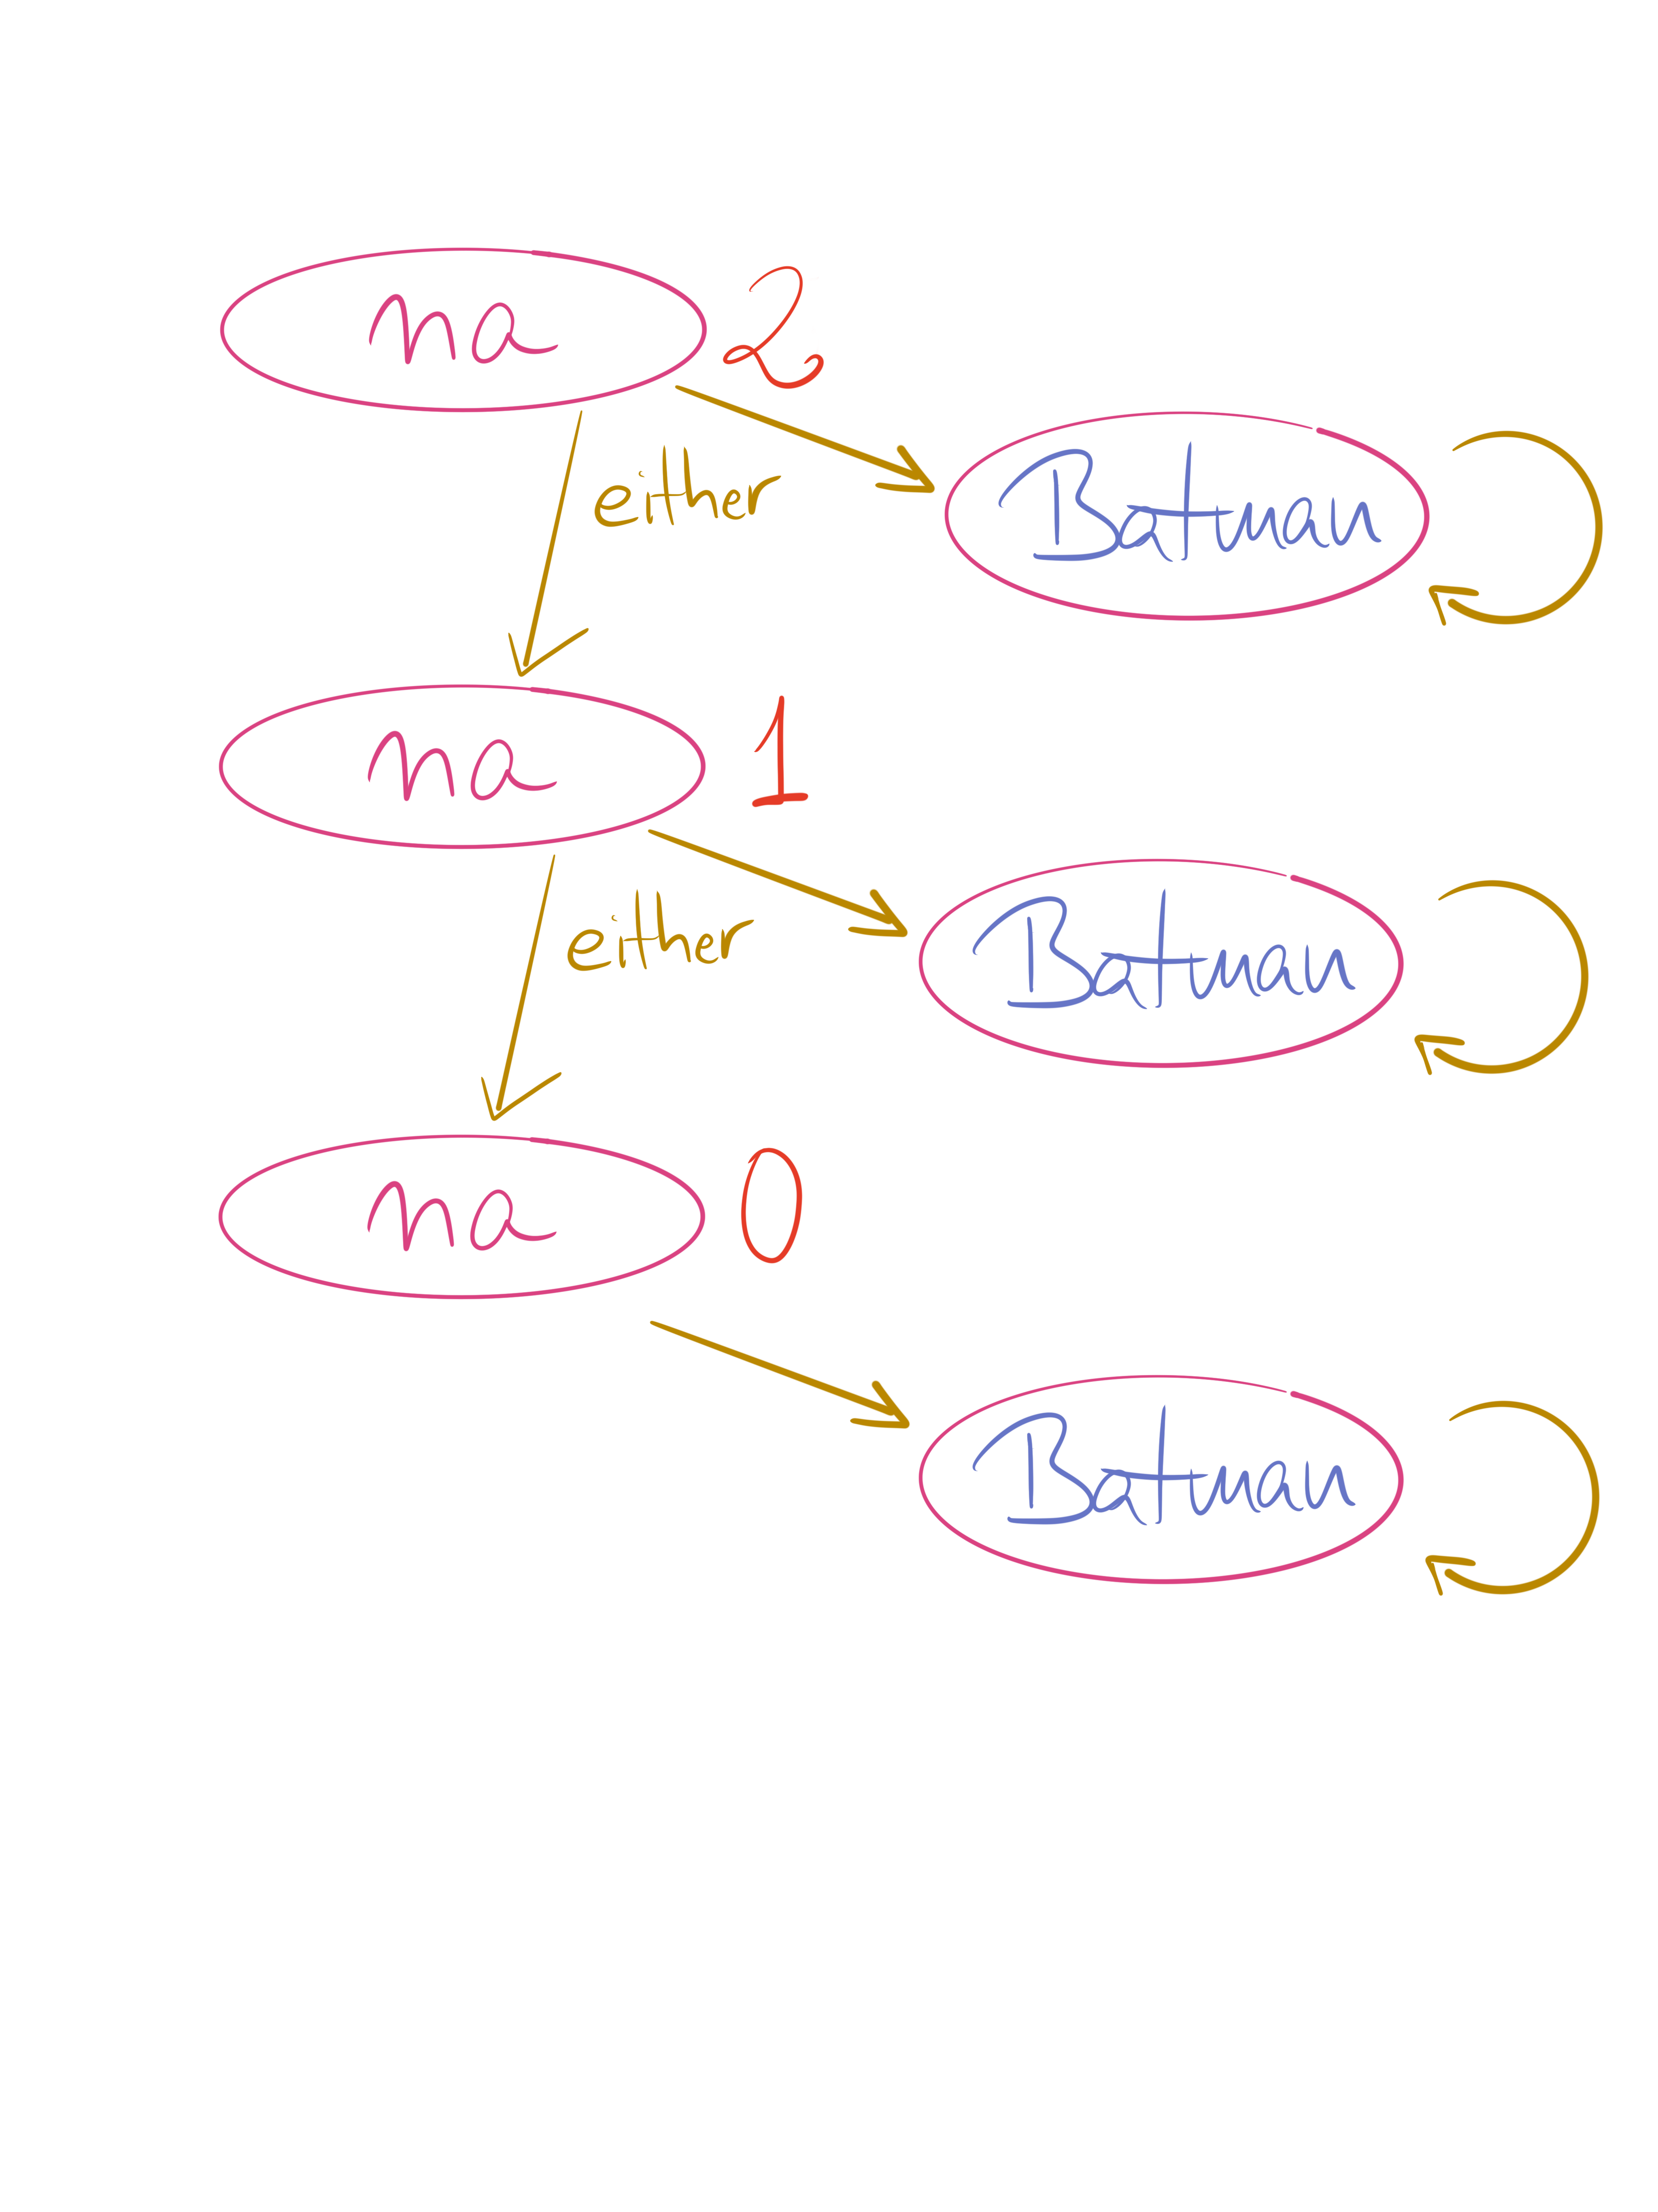 na 2
either Batman
na 1
either Batman
na 0
Batman